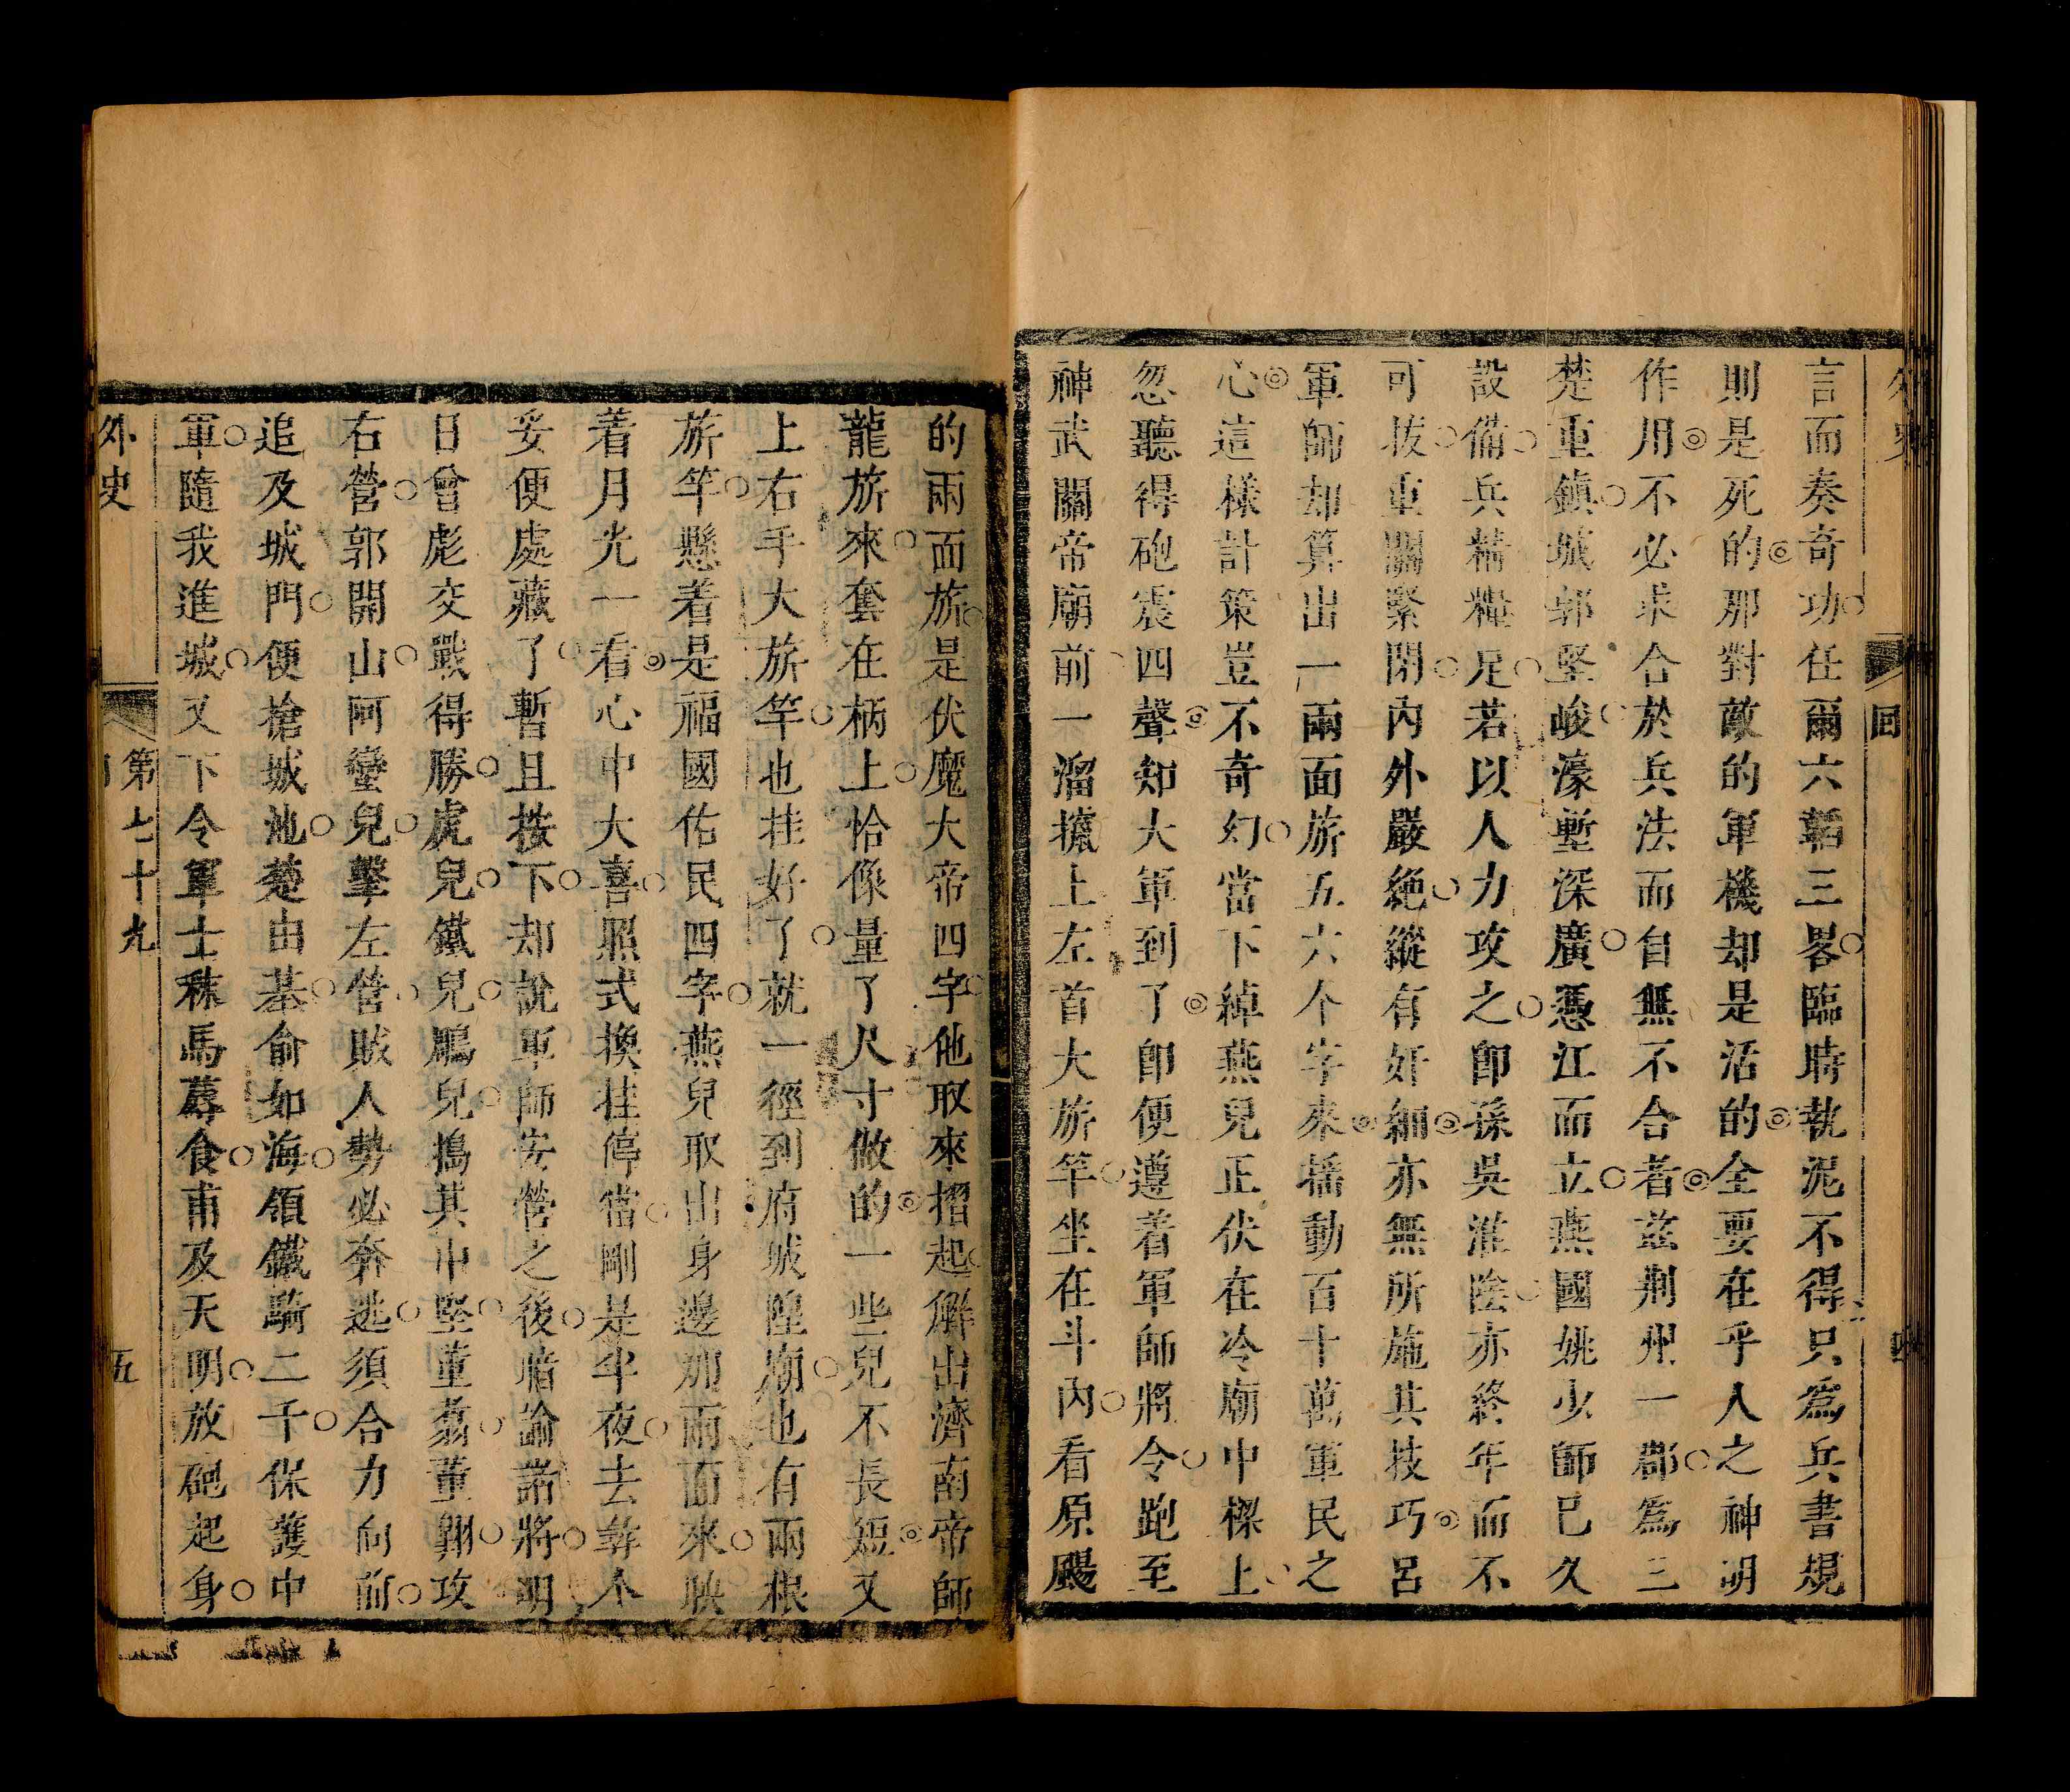 外史
回
四
言而奏奇功任爾六韜三畧臨時執泥不得只爲兵書規
則是死的那對敵的軍機却是活的全要在乎人之神明
作用不必求合於兵法而自無不合者兹荆州一郡爲三
楚重鎮城郭堅峻濠塹深廣憑江而立燕國姚少師已久
設備兵精糧足若以人力攻之卽孫吳淮陰亦終年而不
可拔重關緊閉內外嚴絶縱有奸細亦無所施其技巧呂
軍師却算出一兩面旂五六个字來揺動百十萬軍民之
心這樣計策豈不奇幻當下綽燕兒正伏在冷廟中樑上
忽聽得砲震四聲知大軍到了卽便遵着軍師將令跑至
神武關帝廟前一溜攛上左首大旂竿坐在斗內看原颺
的兩面旂是伏魔大帝四字他取來摺起解出濟南帝師
龍旂來套在柄上恰像量了尺寸做的一些兒不長短又
上右手大旂竿也挂好了就一徑到府城隍廟也有兩根
旂竿懸着是福國佑民四字燕兒取出身邊那兩面來映
着月光一看心中大喜照式換挂停當剛是半夜去尋个
妥便處藏了暫且按下却說軍師安營之後暗諭諸將明
日曾彪交戰得勝虎兒鐵兒鵰兒搗其中堅董翥董翱攻
右營郭開山阿蠻兒擊左營賊人勢必奔逃須合力向前
追及城門便搶城池楚由基俞如海領鐵騎二千保護中
軍隨我進城又下令軍士秣馬蓐食甫及天明放砲起身
外史
第七十九
五